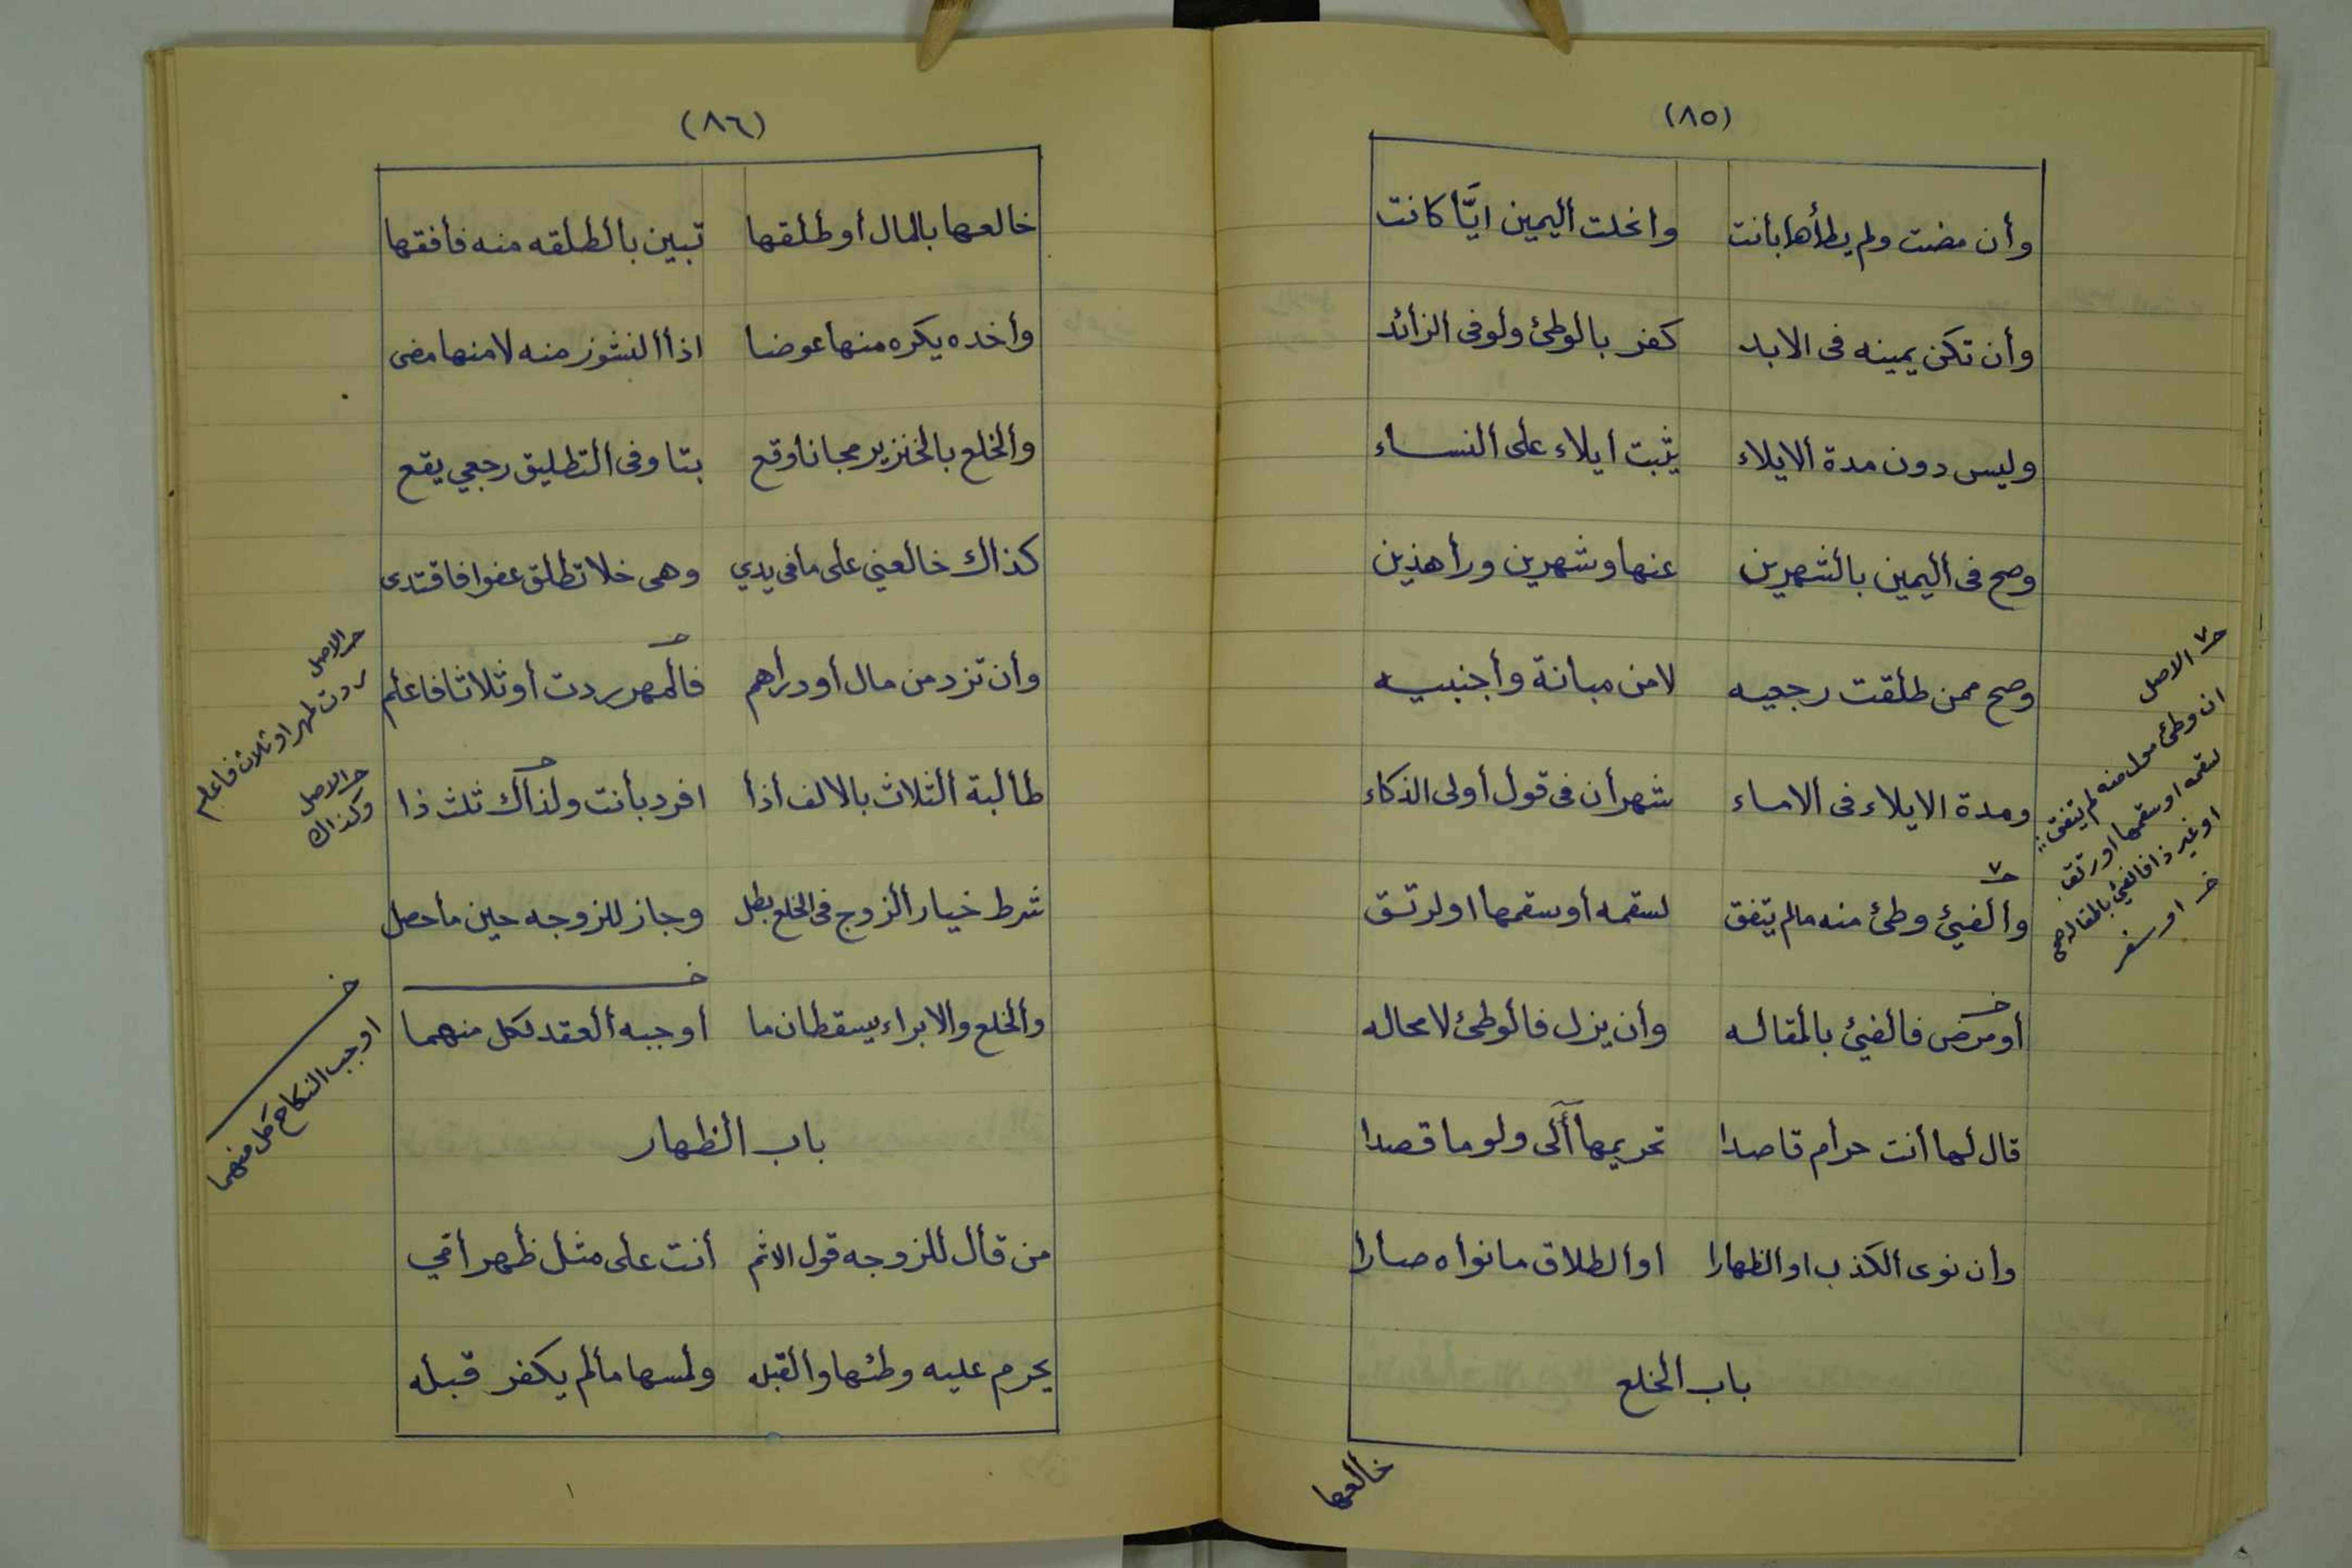 (٨٥)
وأن مضت ولم يطأها بأنت وأنحلت أليمين ايًّا كانت
وأن تكن يمينه فى الابد كفر بألوطئ ولو فى الزأئد
وليس دون مدة ألايلاء يثبت أيلاء على ألنساء
وصح فى أليمين بألشهرين عنها وشهرين ورأ هذين
وصح ممن طلقت رجعيه لا من مبانة وأجنبيه
ومدة الايلاء فى ألاماء شهرأن فى قول أولى الذكاء
وألفيئ وطئ منه مالم يتفق لسقمه أو سقمها او لرتق
أو مرض فألفيئ بألمقاله وأن يزل فألوطئ لا محاله
قال لها أنت حرأم قاصدا تحريمها أٓلى ولو ما قصدا
وأن نوى ألكذب او ألظهارا او ألطلاق ما نوأه صارا
باب ألخلع
خألعها
الاصل
ان وطئ منه لم يتفق
لسقمه او سقمها او رتق
او غير ذا فالفيئ بالمقاله
خـ او سفر
(٨٦)
خالعها بالمال أو طلقها تبين بألطلقه منه فأفقها
وأخذه يكره منها عوضا اذأ ألنشوز منه لا منها مضى
وألخلع بألخنزير مجانا وقع بتا وفى ألتطليق رجعي يقع
كذاك خالعني على ما فى يدي وهى خلا تطلق عفوا فاقتدى
وأن تزد من مال أو درأهم فألمهر ردت أو ثلاثا فاعلم
طألبة ألثلاث بالالف أذأ افرد بأنت ولذأك ثلث ذا
شرط خيار ألزوج فى الخلع بطل وجاز للزوجه حين مأ حصل
وألخلع والابراء يسقطان ما أوجبه ألعقد لكل منهما
باب ألظهار
من قأل للزوجه قول الاثم أنت على مثل ظهر أمي
يحرم عليه وطئها وألقبله ولمسها مألم يكفر قبله
الاصل
ردت لمهر او ثلاث فاعلم
الاصل
وكذاك
خـ
اوجب النكاح كل منهما